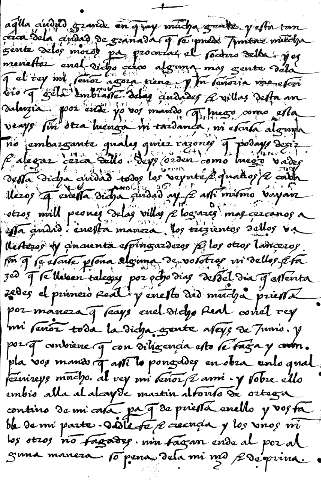 aq̃lla ciudad grande en q̃ ay mucha gente. y esta tan
cerca dela ciudad de granada q̃ se puede Juntar mucha
gente delos moros pa procurar el socorro della. y os
menester enel dicho cerco alguna mas gente dela
q̃ el rey mi señor agora tiene. y su señoria me escri
vio q̃ gela embiasse delas ciudades & villas desta an
daluzia. por ende yo vos mando q̃ luego como esta
veays sin otra luenga ni tardança, ni escusa alguna
no embargante quales quier razones q̃ podays dezir
& alegar cerca dello. deys orden como luego vades
dessa dicha ciudad todos los veynte & quatros & cava
lleros q̃ enessa dicha ciudad ay & assi mismo vayan
otros mill peones delas villas & logares mas cercanos a
essa ciudad. enesta manera. los trezientos dellos va
llesteros & cinquenta espingarderos & los otros lanceros
sin q̃ se escuse psona alguna de vosotros ni dellos & fa
zed q̃ se lleven talegas por ocho dias desdel dia q̃ assenta
redes el primero Real. y enesto dad mucha priessa
por manera q̃ seays enel dicho Real conel rey
mi señor toda la dicha gente a seys de Junio. y
por q̃ conviene q̃ con diligencia esto se faga & cum
pla vos mando q̃ assi lo pongades en obra enlo qual
servireys mucho. al rey mi señor & ami. y sobre ello
embio alla al alcayde martin alfonso de ortega
contino de mi casa pa q̃ de priessa enello & vos fa
ble de mi parte. dadle fe & creencia. y los unos ni
los otros no fagades. nin fagan ende al por al
guna manera so pena dela mi md & de priva